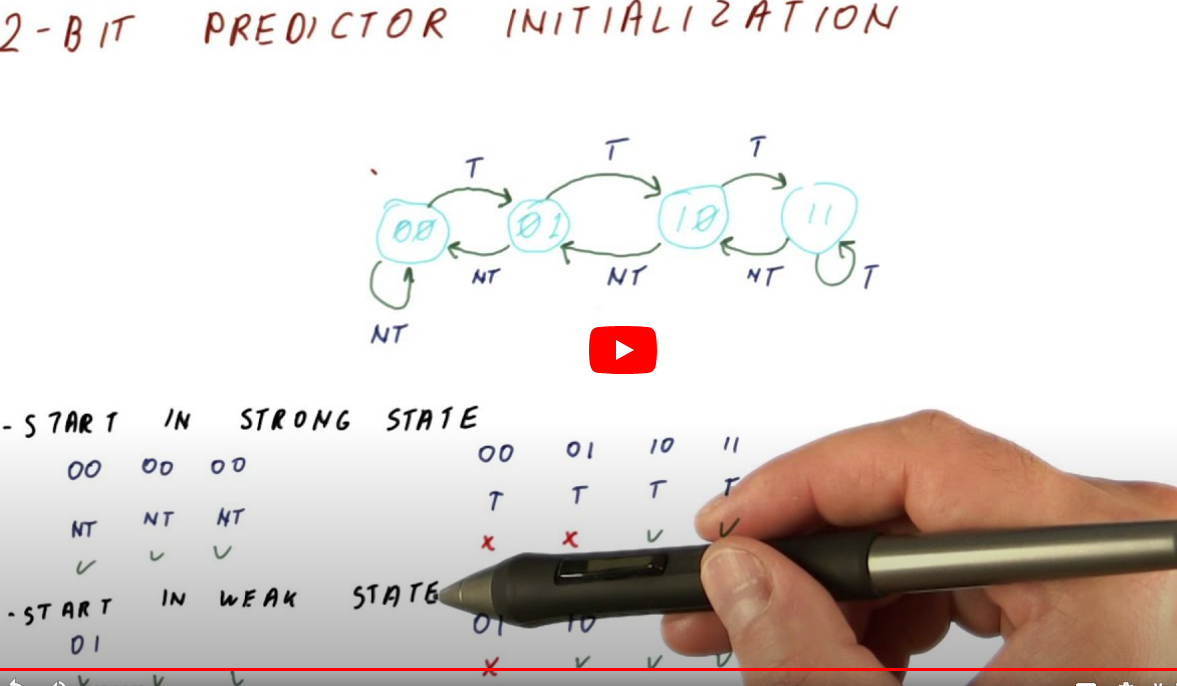 2-BIT PREDICTOR INITIALIZATION
T T T
00 01 10 11
NT NT NT T
NT
- START IN STRONG STATE
00 00 00 00 01 10 11
NT NT NT T T T T
- START IN WEAK STATE
01 01 10